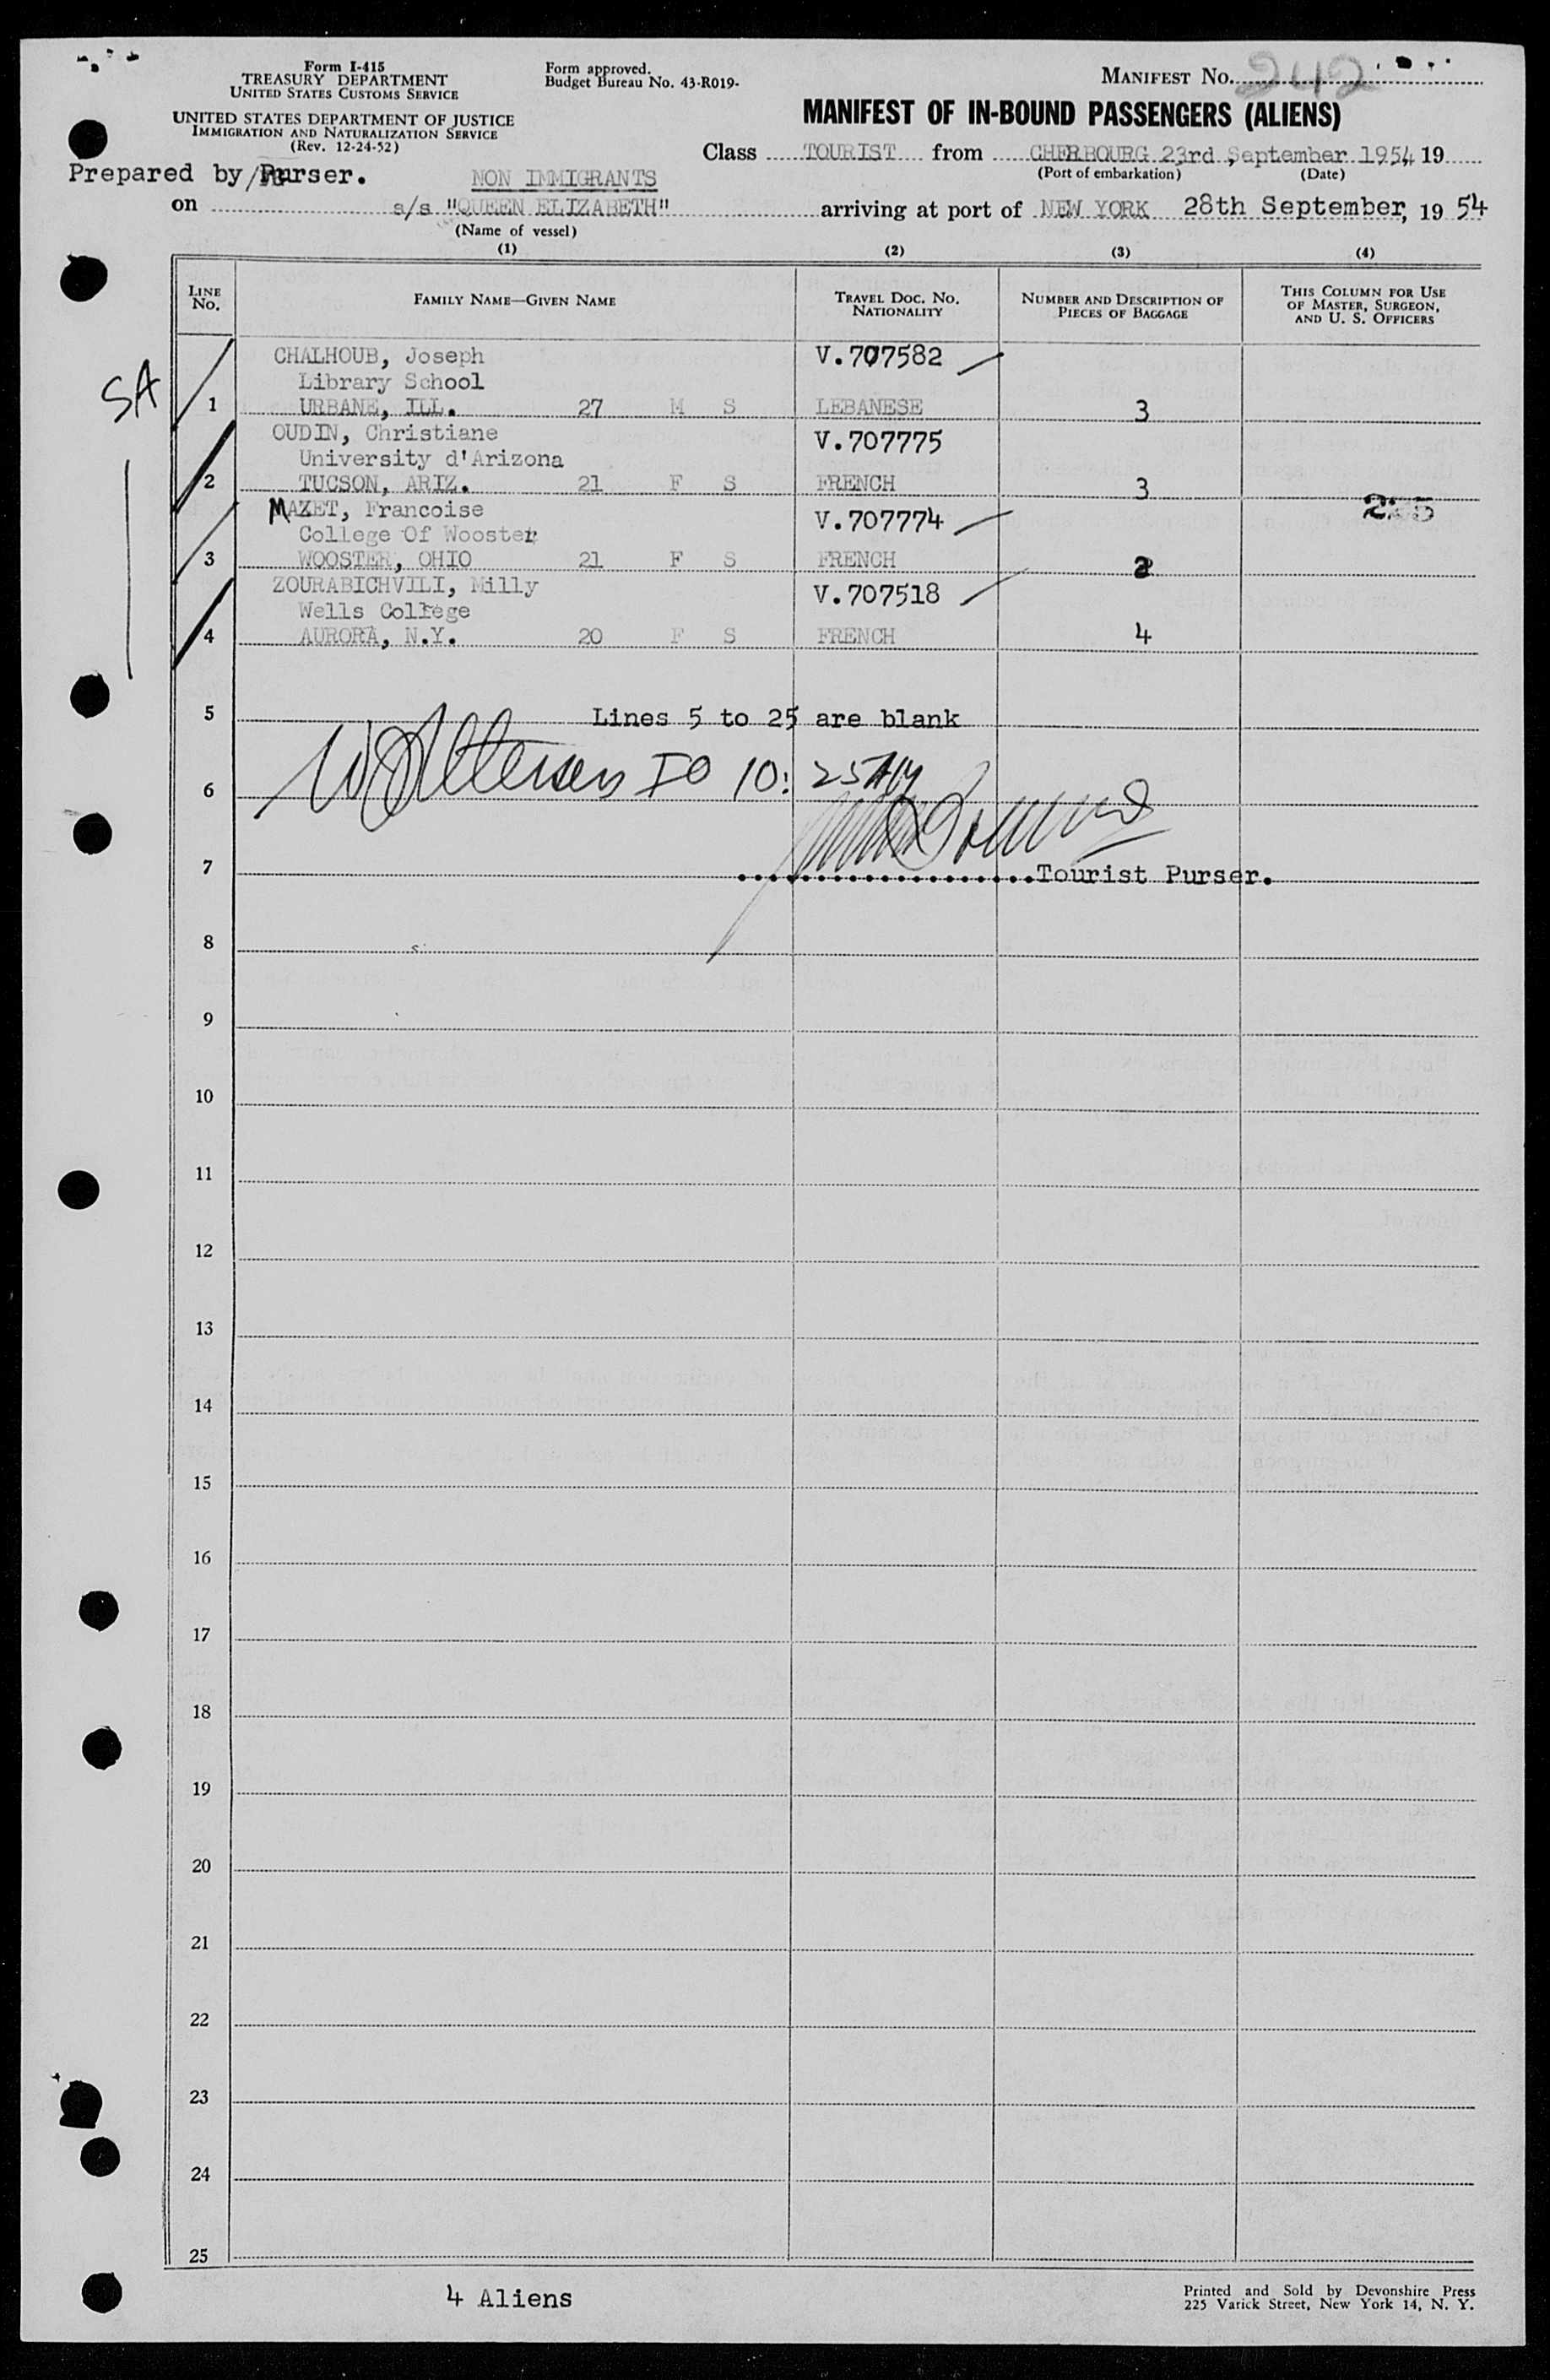 Form I-415
TREASURY DEPARTMENT
UNITED STATES CUSTOMS SERVICE
UNITED STATES DEPARTMENT OF JUSTICE
IMMIGRATION AND NATURALIZATION SERVICE
(Rev. 12-24-52)
Form approved.
Budget Bureau No. 43-R019-
MANIFEST No. 242
MANIFEST OF IN-BOUND PASSENGERS (ALIENS)
Class TOURIST from CHERBOURG 23rd, September 1954 19
(Port of embarkation) (Date)
Prepared by Purser. NON IMMIGRANTS
on s/s "QUEEN ELIZABETH" arriving at port of NEW YORK 28th September, 19 54
(Name of vessel)
(1) (2) (3) (4)
LINE No. FAMILY NAME—GIVEN NAME TRAVEL DOC. No. NATIONALITY NUMBER AND DESCRIPTION OF PIECES OF BAGGAGE THIS COLUMN FOR USE OF MASTER, SURGEON, AND U. S. OFFICERS
SA
CHALHOUB, Joseph V.707582
Library School
1 URBANE, ILL. 27 M S LEBANESE 3
OUDIN, Christiane V.707775
University d'Arizona
2 TUCSON, ARIZ. 21 F S FRENCH 3
MAZET, Francoise V.707774
College Of Wooster
3 WOOSTER, OHIO 21 F S FRENCH 2
ZOURABICHVILI, Milly V.707518
Wells College
4 AURORA, N.Y. 20 F S FRENCH 4
5 Lines 5 to 25 are blank
6 IO 10:25 AM
7 Tourist Purser.
8
9
10
11
12
13
14
15
16
17
18
19
20
21
22
23
24
25
4 Aliens
Printed and Sold by Devonshire Press
225 Varick Street, New York 14, N. Y.